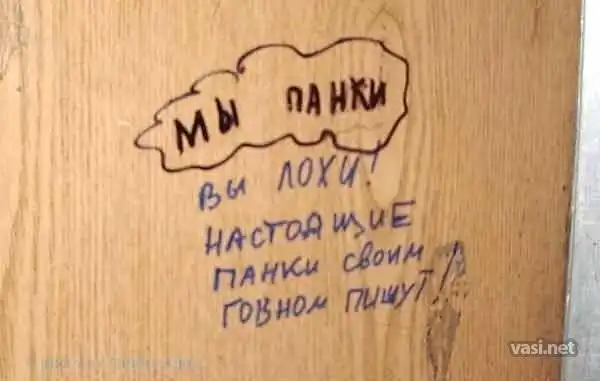 МЫ ПАНКИ
ВЫ ЛОХИ!
НАСТОЯЩИЕ
ПАНКИ СВОИМ
ГОВНОМ ПИШУТ!
vasi.net